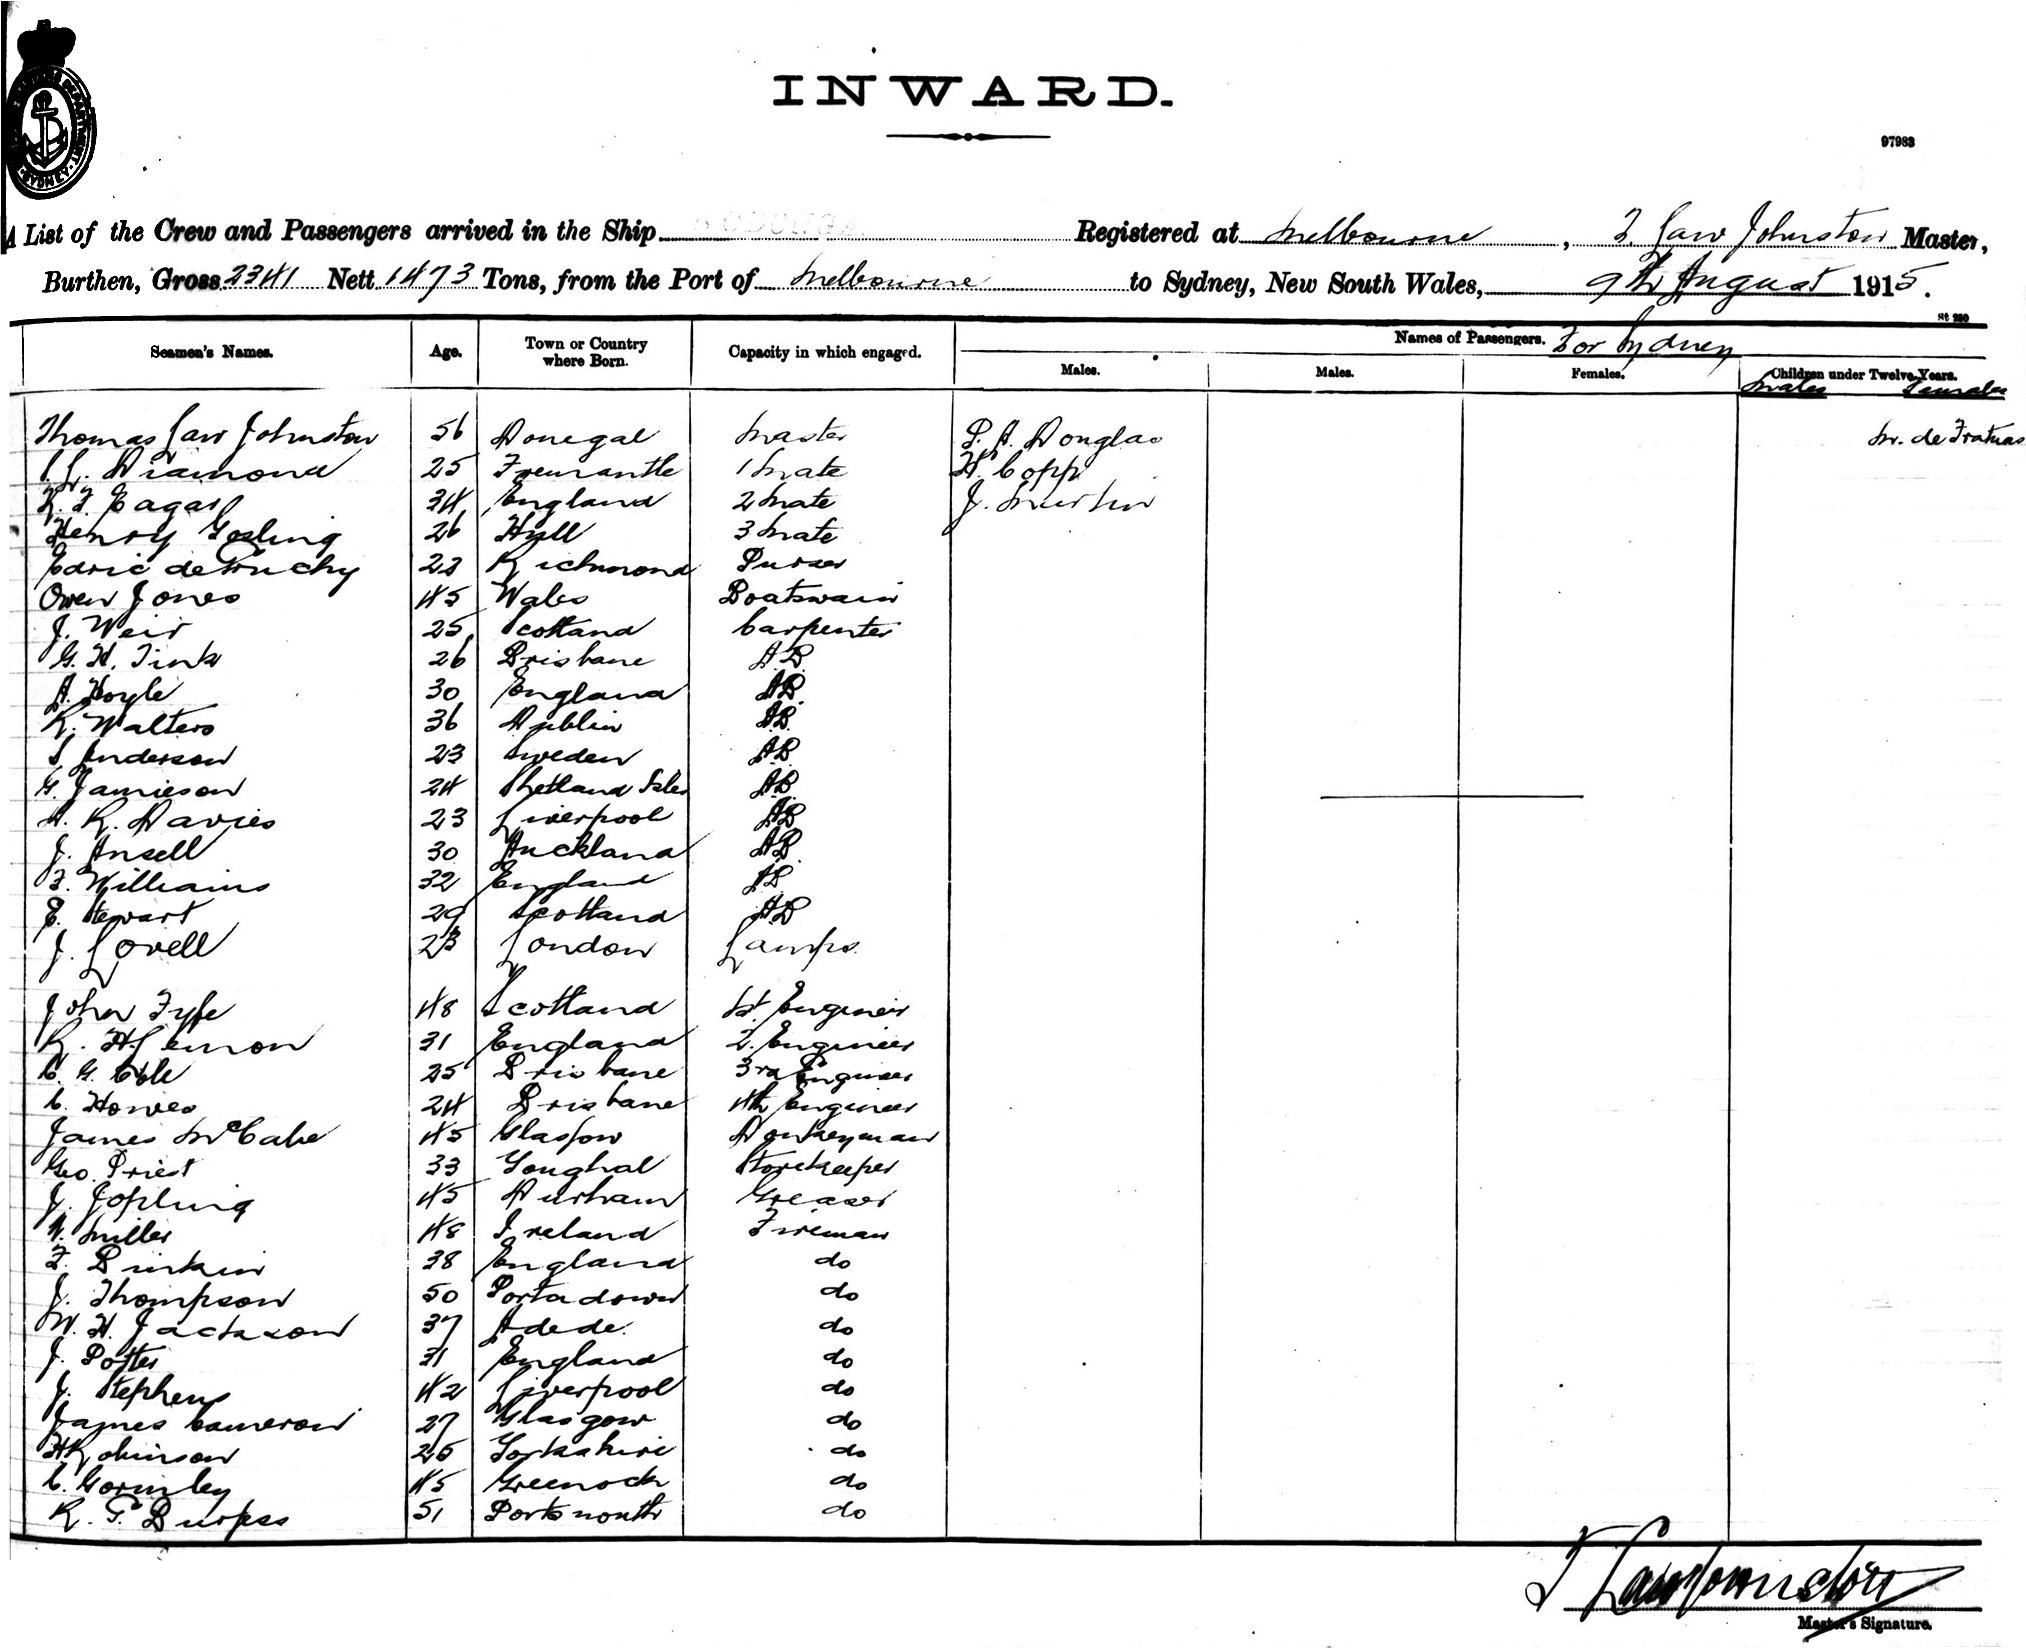 INWARD.
97983
A List of the Crew and Passengers arrived in the Ship Registered at Melbourne, T. Law Johnston Master,
Burthen, Gross 2341 Nett 1473 Tons, from the Port of Melbourne to Sydney, New South Wales, 9th August 1915.
St 250
Seamen's Names. Age. Town or Country where Born. Capacity in which engaged. Names of Passengers. For Sydney
Males. Males. Females. Children under Twelve Years.
Males Females
Thomas Law Johnston 56 Donegal Master P. A. Douglas M. de Fratuas
L. Diamond 25 Fremantle 1 Mate H. Copp
F. Eagar 34 England 2 Mate J. Martin
Henry Gosling 26 Hull 3 Mate
Edric de Pruchy 22 Richmond Purser
Owen Jones 45 Wales Boatswain
J. Weir 25 Scotland Carpenter
G. H. Tink 26 Brisbane A.B.
A. Hoyle 30 England AB
R. Walters 36 Dublin AB
S Anderson 23 Sweden AB
G. Jamieson 24 Shetland Isles AB
A. R. Davies 23 Liverpool AB
J. Ansell 30 Auckland AB
F. Williams 32 England AB
E. Stewart 29 Scotland AB
J. Lovell 23 London Lamps.
John Fyfe 48 Scotland 1st. Engineer
R. H Lemon 31 England 2. Engineer
C. G. Cole 25 Brisbane 3rd Engineer
C. Howes 24 Brisbane 4th Engineer
James McCabe 45 Glasgow Donkeyman
Geo. Priest 33 Youghal Storekeeper
J. Jopling 45 Durham Greaser
Miller 48 Ireland Fireman
F. Binkin 38 England do
J. Thompson 50 Portadown do
W. H. Jackson 37 Adede. do
J. Potter 31 England do
J. Stephens 42 Liverpool do
James Cameron 27 Glasgow do
H Robinson 26 Yorkshire do
C. Gormley 45 Greenock do
R. G. Burgess 51 Portsmouth do
T Law Johnston
Master's Signature.